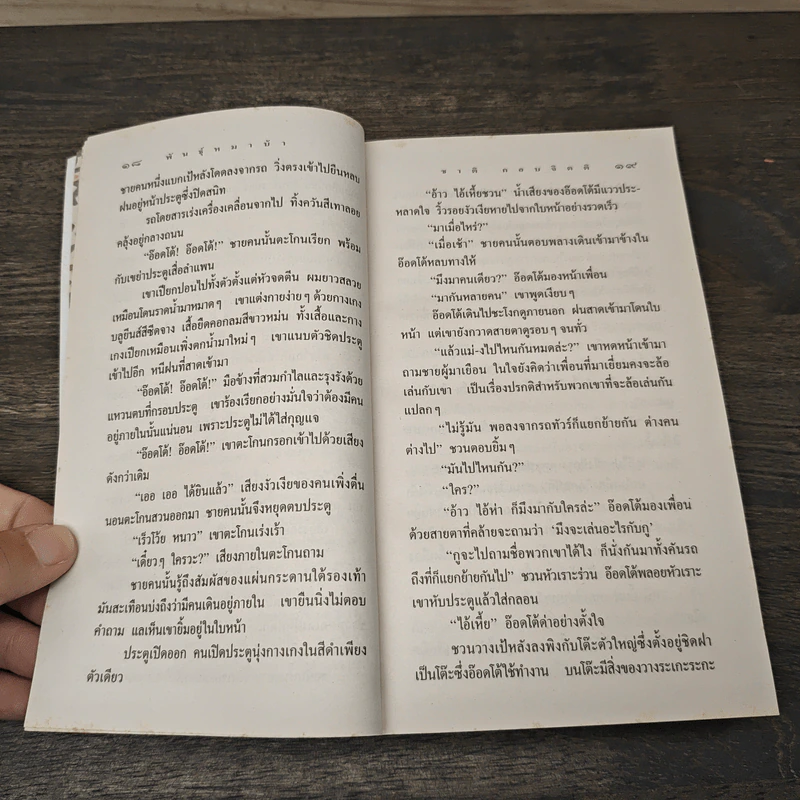 ๑๘ พันธุ์หมาบ้า
ชายคนหนึ่งแบกเป้หลังโดดลงจากรถ วิ่งตรงเข้าไปยืนหลบ
ฝนอยู่หน้าประตูซึ่งปิดสนิท
รถโดยสารเร่งเครื่องเคลื่อนจากไป ทิ้งควันสีเทาลอย
คลุ้งอยู่กลางถนน
“อ๊อดโต้! อ๊อดโต้!” ชายคนนั้นตะโกนเรียก พร้อม
กับเขย่าประตูเสื่อลำแพน
เขาเปียกปอนไปทั้งตัวตั้งแต่หัวจดตีน ผมยาวสลวย
เหมือนโดนราดน้ำมาหมาดๆ เขาแต่งกายง่ายๆ ด้วยกางเกง
บลูยีนส์สีซีดจาง เสื้อยืดคอกลมสีขาวหม่น ทั้งเสื้อและกาง
เกงเปียกเหมือนเพิ่งตกน้ำมาใหม่ๆ เขาแนบตัวชิดประตู
เข้าไปอีก หนีฝนที่สาดเข้ามา
“อ๊อดโต้! อ๊อดโต้!” มือข้างที่สวมกำไลและรุงรังด้วย
แหวนตบที่กรอบประตู เขาร้องเรียกอย่างมั่นใจว่าต้องมีคน
อยู่ภายในนั้นแน่นอน เพราะประตูไม่ได้ใส่กุญแจ
“อ๊อดโต้! อ๊อดโต้!” เขาตะโกนกรอกเข้าไปด้วยเสียง
ดังกว่าเดิม
“เออ เออ ได้ยินแล้ว” เสียงงัวเงียของคนเพิ่งตื่น
นอนตะโกนสวนออกมา ชายคนนั้นจึงหยุดตบประตู
“เร็วโว้ย หนาว” เขาตะโกนเร่งเร้า
“เดี๋ยวๆ ใครวะ?” เสียงภายในตะโกนถาม
ชายคนนั้นรู้ถึงสัมผัสของแผ่นกระดานใต้รองเท้า
มันสะเทือนบ่งถึงว่ามีคนเดินอยู่ภายใน เขายืนนิ่งไม่ตอบ
คำถาม แลเห็นเขายิ้มอยู่ในใบหน้า
ประตูเปิดออก คนเปิดประตูนุ่งกางเกงในสีดำเพียง
ตัวเดียว
ชาติ กอบจิตติ ๑๙
“อ้าว ไอ้เหี้ยชวน” น้ำเสียงของอ๊อดโต้มีแววประ-
หลาดใจ ริ้วรอยงัวเงียหายไปจากใบหน้าอย่างรวดเร็ว
“มาเมื่อไหร่?”
“เมื่อเช้า” ชายคนนั้นตอบพลางเดินเข้ามาข้างใน
อ๊อดโต้หลบทางให้
“มึงมาคนเดียว?” อ๊อดโต้มองหน้าเพื่อน
“มากันหลายคน” เขาพูดเงียบๆ
อ๊อดโต้เดินไปชะโงกดูภายนอก ฝนสาดเข้ามาโดนใบ
หน้า แต่เขายังกวาดสายตาดูรอบๆ จนทั่ว
“แล้วแม่-งไปไหนกันหมดล่ะ?” เขาหดหน้าเข้ามา
ถามชายผู้มาเยือน ในใจยังคิดว่าเพื่อนที่มาเยี่ยมคงจะล้อ
เล่นกับเขา เป็นเรื่องปรกติสำหรับพวกเขาที่จะล้อเล่นกัน
แปลกๆ
“ไม่รู้มัน พอลงจากรถทัวร์ก็แยกย้ายกัน ต่างคน
ต่างไป” ชวนตอบยิ้มๆ
“มันไปไหนกัน?”
“ใคร?”
“อ้าว ไอ้ห่า ก็มึงมากับใครล่ะ” อ๊อดโต้มองเพื่อน
ด้วยสายตาที่คล้ายจะถามว่า ‘มึงจะเล่นอะไรกับกู’
“กูจะไปถามชื่อพวกเขาได้ไง ก็นั่งกันมาทั้งคันรถ
ถึงที่ก็แยกย้ายกันไป” ชวนหัวเราะร่วน อ๊อดโต้พลอยหัวเราะ
เขาหับประตูแล้วใส่กลอน
“ไอ้เหี้ย” อ๊อดโต้ด่าอย่างตั้งใจ
ชวนวางเป้หลังลงพิงกับโต๊ะตัวใหญ่ซึ่งตั้งอยู่ชิดฝา
เป็นโต๊ะซึ่งอ๊อดโต้ใช้ทำงาน บนโต๊ะมีสิ่งของวางระเกะระกะ